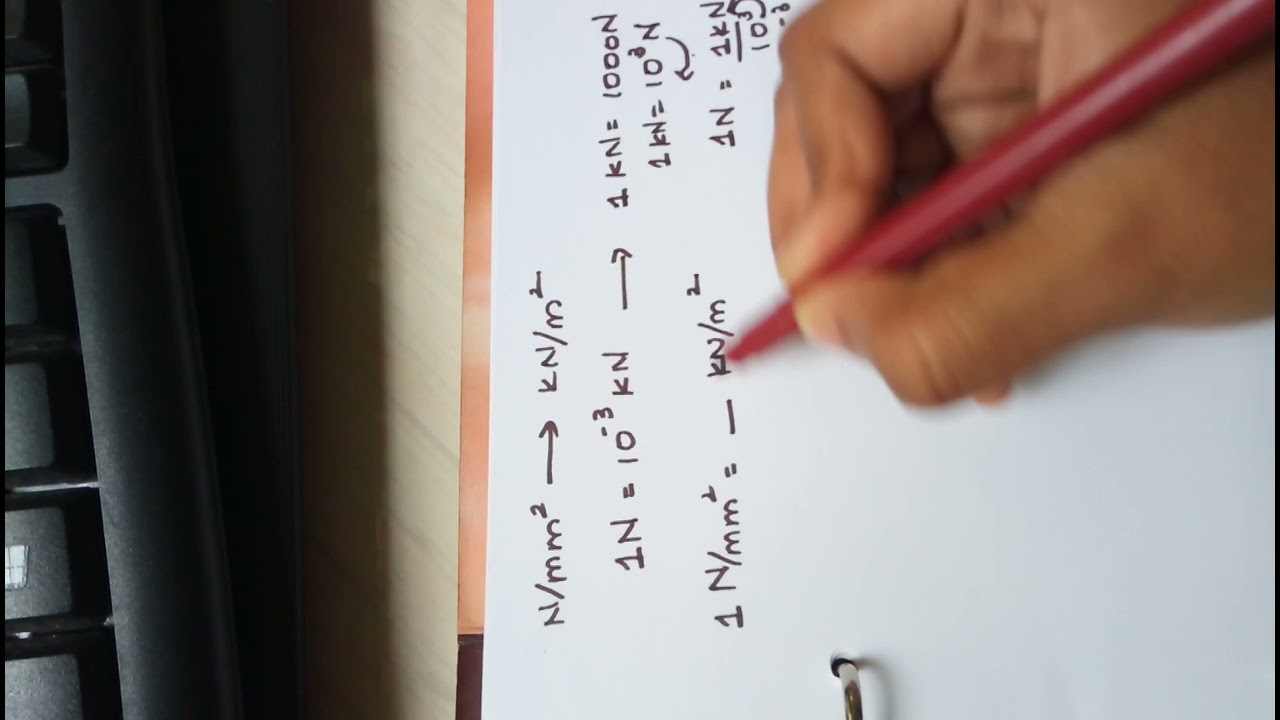 N/mm² → kN/m²
1N = 10⁻³ kN → 1 kN = 1000N
1 kN = 10³ N
1N = 1kN
10³
-3
1 N/mm² = — kN/m²